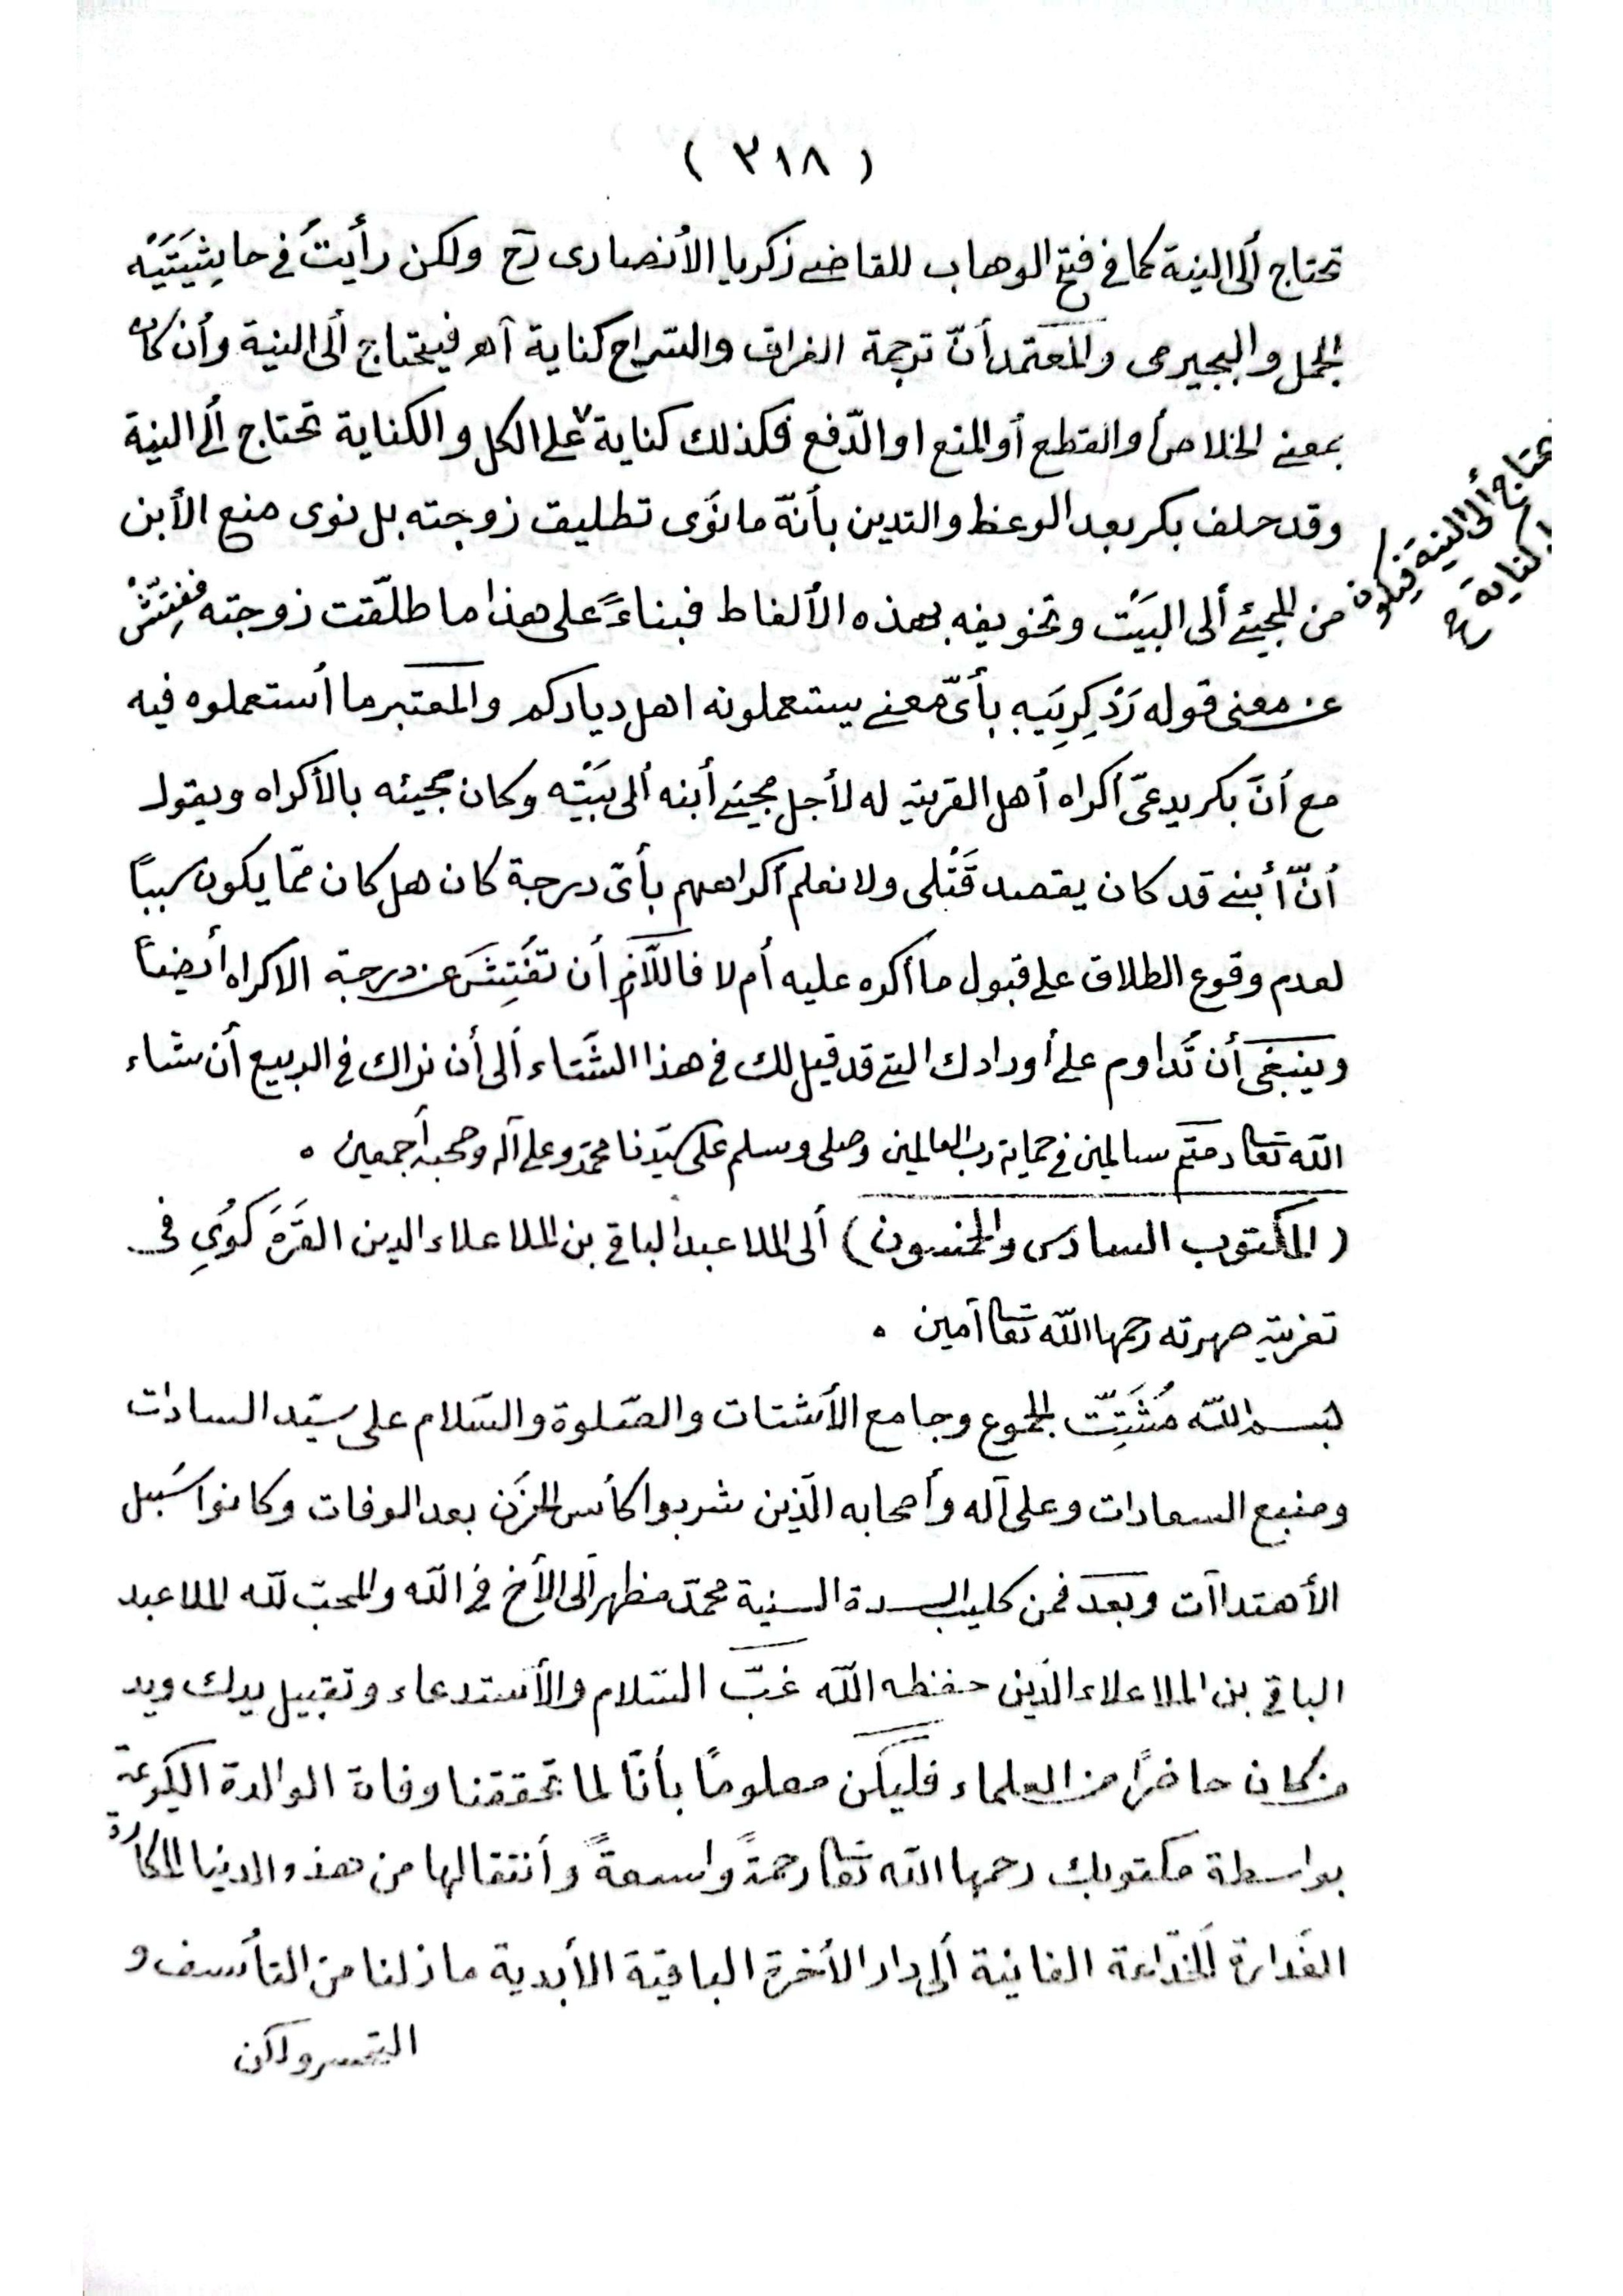 ( ٣١٨ )
تحتاج ألى النية كما في فتح الوهاب للقاضى زكريا الأنصارى رح ولكن رأيتُ في حاشِيَتَيْه
الجمل والبجيرمى والمعتمد أنّ ترجمة الفراق والسّراح كناية آهـ فيحتاج ألى النية وأن كان
بمعنى الخلاص أوالقطع أوالمنع اوالدّفع فكذلك كناية على الكل والكناية تحتاج ألى النية
وقد حلف بكر بعد الوعظ والتدين بأنّه ما نَوَى تطليق زوجته بل نوى منع الأبن
من المجيئ ألى البَيْت وتخويفه بهذه الألفاظ فبناءً على هذا ما طلّقت زوجته ففِتّشْ
عن معنى قوله رَدْ كِرِيَيه بأىّ معنى يستعملونه اهل دياركم والمعتبر ما أستعملوه فيه
مع أنّ بكر يدعىّ أكراه أهل القرية له لأجل مجيئ أبنه ألى بَيْتِه وكان مجيئه بالأكراه ويقول
أنّ أبنى قد كان يقصد قَتْلى ولا نعلم أكراههم بأىّ درجة كان هل كان ممّا يكون سببًا
لعدم وقوع الطلاق على قبول ما أكره عليه أم لا فاللّازم أن تفَتِشَ عن درجة الاكراه أيضًا
وينبغى أن تُداوم على أورادك التى قد قيل لك في هذا الشّتاء ألى أن نراك في الربيع أن شاء
الله تعا دمتم سالمين في حماية رب العالمين وصلى وسلم على سيّدنا محمّد وعلى آله وصحبه أجمعين ٥
( المكتوب السادس والخمسون ) ألى الملا عبد الباقى بن الملا علاء الدين القَرَهَ كُوىِ في
تعزية صهرته رحمها الله تعا آمين ٠
بسم الله مُشَتِتّ الجموع وجامع الأشتات والصّلوة والسّلام على سيّد السادات
ومنبع السعادات وعلى آله وأصحابه الّذين شربوا كأس الحزن بعد الوفات وكانوا سُبل
الأهتداآت وبَعد فمن كليب السدة السنية محمّد مظهر ألى الأخ في الله والمحبّ لله الملا عبد
الباقى بن الملا علاء الدّين حفظه الله غبّ السّلام والأستدعاء وتقبيل يدك ويد
من كان حاضرًا من العلماء فليكن معلومًا بأنّا لما تحققنا وفاة الوالدة الكريمة
بواسطة مكتوبك رحمها الله تعا رحمةً واسعةً وأنتقالها من هذه الدنيا المكارة
الغدارة الخدّاعة الفانية ألى دار الأخرة الباقية الأبدية ما زلنا من التأسف و
التحسر ولكن
تحتاج ألى النية فيكون
كناية ح